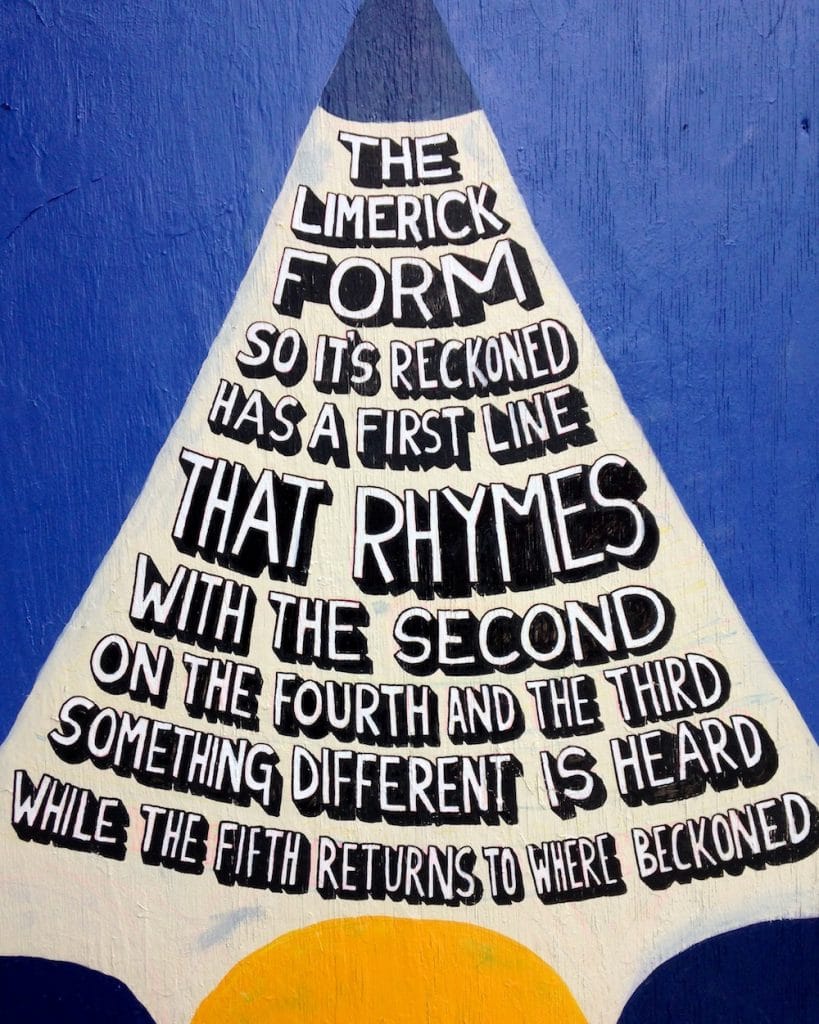 THE
LIMERICK
FORM
SO IT'S RECKONED
HAS A FIRST LINE
THAT RHYMES
WITH THE SECOND
ON THE FOURTH AND THE THIRD
SOMETHING DIFFERENT IS HEARD
WHILE THE FIFTH RETURNS TO WHERE BECKONED